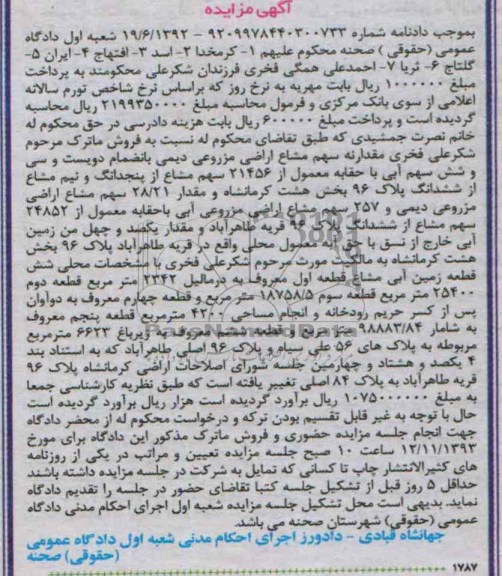 آگهی مزایده
بموجب دادنامه شماره ۹۲۰۹۹۷۸۴۴۰۳۰۰۷۳۳ - ۱۹/۶/۱۳۹۲ شعبه اول دادگاه
عمومی (حقوقی) صحنه محکوم علیهم ۱- کرمخدا ۲- اسد ۳- افتهاج ۴- ایران ۵-
گلتاج ۶- ثریا ۷- احمدعلی همگی فخری فرزندان شکرعلی محکومند به پرداخت
مبلغ ۱۰۰۰۰۰۰ ریال بابت مهریه به نرخ روز که براساس نرخ شاخص تورم سالانه
اعلامی از سوی بانک مرکزی و فرمول محاسبه مبلغ ۲۱۹۹۳۵۰۰۰۰ ریال محاسبه
گردیده است و پرداخت مبلغ ۶۰۰۰۰۰ ریال بابت هزینه دادرسی در حق محکوم له
خانم نصرت جمشیدی که طبق تقاضای محکوم له نسبت به فروش ماترک مرحوم
شکرعلی فخری مقدارنه سهم مشاع اراضی مزروعی دیمی بانضمام دویست و سی
و شش سهم آبی با حقابه معمول از ۲۱۴۵۶ سهم مشاع از پنجدانگ و نیم مشاع
از ششدانگ پلاک ۹۶ بخش هشت کرمانشاه و مقدار ۲۸/۲۱ سهم مشاع اراضی
مزروعی دیمی و ۲۵۷ سهم مشاع اراضی مزروعی آبی باحقابه معمول از ۲۴۸۵۲
سهم مشاع از ششدانگ پلاک ۹۶ قریه طاهرآباد و مقدار یکصد و چهل من زمین
آبی خارج از نسق با حق آبه معمول محلی واقع در قریه طاهرآباد پلاک ۹۶ بخش
هشت کرمانشاه به مالکیت مورث مرحوم شکرعلی فخری با مشخصات محلی شش
قطعه زمین آبی مشاع قطعه اول معروف به درمالیل ۲۳۴۲ متر مربع قطعه دوم
۲۵۴۰۰ متر مربع قطعه سوم ۱۸۷۵۸/۵ متر مربع و قطعه چهارم معروف به دوآوان
پس از کسر حریم رودخانه و انجام مساحی ۴۲۰۰ مترمربع قطعه پنجم معروف
به شامار ۹۸۸۸۳/۸۴ متر مربع و قطعه ششم معروف به زیرباغ ۶۶۲۳ مترمربع
مربوطه به پلاک های ۵۶ علی سیاه و پلاک ۹۶ اصلی طاهرآباد که به استناد بند
۴ یکصد و هشتاد و چهارمین جلسه شورای اصلاحات اراضی کرمانشاه پلاک ۹۶
قریه طاهرآباد به پلاک ۸۴ اصلی تغییر یافته است که طبق نظریه کارشناسی جمعا
به مبلغ ۱۰۷۵۰۰۰۰۰۰ ریال برآورد گردیده است هزار ریال برآورد گردیده است
حال با توجه به غیر قابل تقسیم بودن ترکه و درخواست محکوم له از محضر دادگاه
جهت انجام جلسه مزایده حضوری و فروش ماترک مذکور این دادگاه برای مورخ
۱۲/۱۱/۱۳۹۳ ساعت ۱۰ صبح جلسه مزایده تعیین و مراتب در یکی از روزنامه
های کثیرالانتشار چاپ تا کسانی که تمایل به شرکت در جلسه مزایده داشته باشند
حداقل ۵ روز قبل از تشکیل جلسه کتبا تقاضای حضور در جلسه را تقدیم دادگاه
نماید. بدیهی است محل تشکیل جلسه مزایده شعبه اول اجرای احکام مدنی دادگاه
عمومی (حقوقی) شهرستان صحنه می باشد.
جهانشاه قبادی - دادورز اجرای احکام مدنی شعبه اول دادگاه عمومی
(حقوقی) صحنه
۱۷۸۷